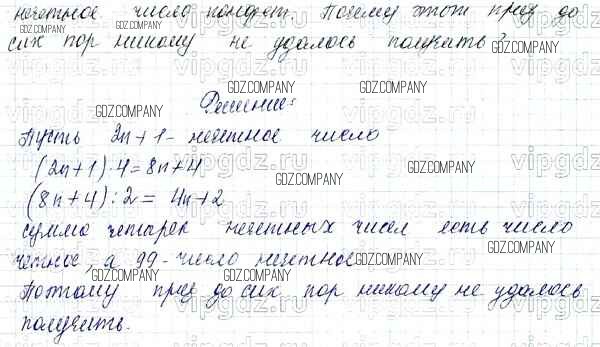 нечетное число монет. Почему этот приз до
сих пор никому не удалось получить?
Решение:
Пусть 2n+1 - нечетное число
(2n+1)·4=8n+4
(8n+4):2=4n+2
сумма четырех нечетных чисел есть число
четное, а 99 - число нечетное
Поэтому приз до сих пор никому не удалось
получить.
GDZ.COMPANY
GDZ.COMPANY
GDZ.COMPANY
GDZ.COMPANY
GDZ.COMPANY
GDZ.COMPANY
GDZ.COMPANY
GDZ.COMPANY
GDZ.COMPANY
vipgdz.ru
vipgdz.ru
vipgdz.ru